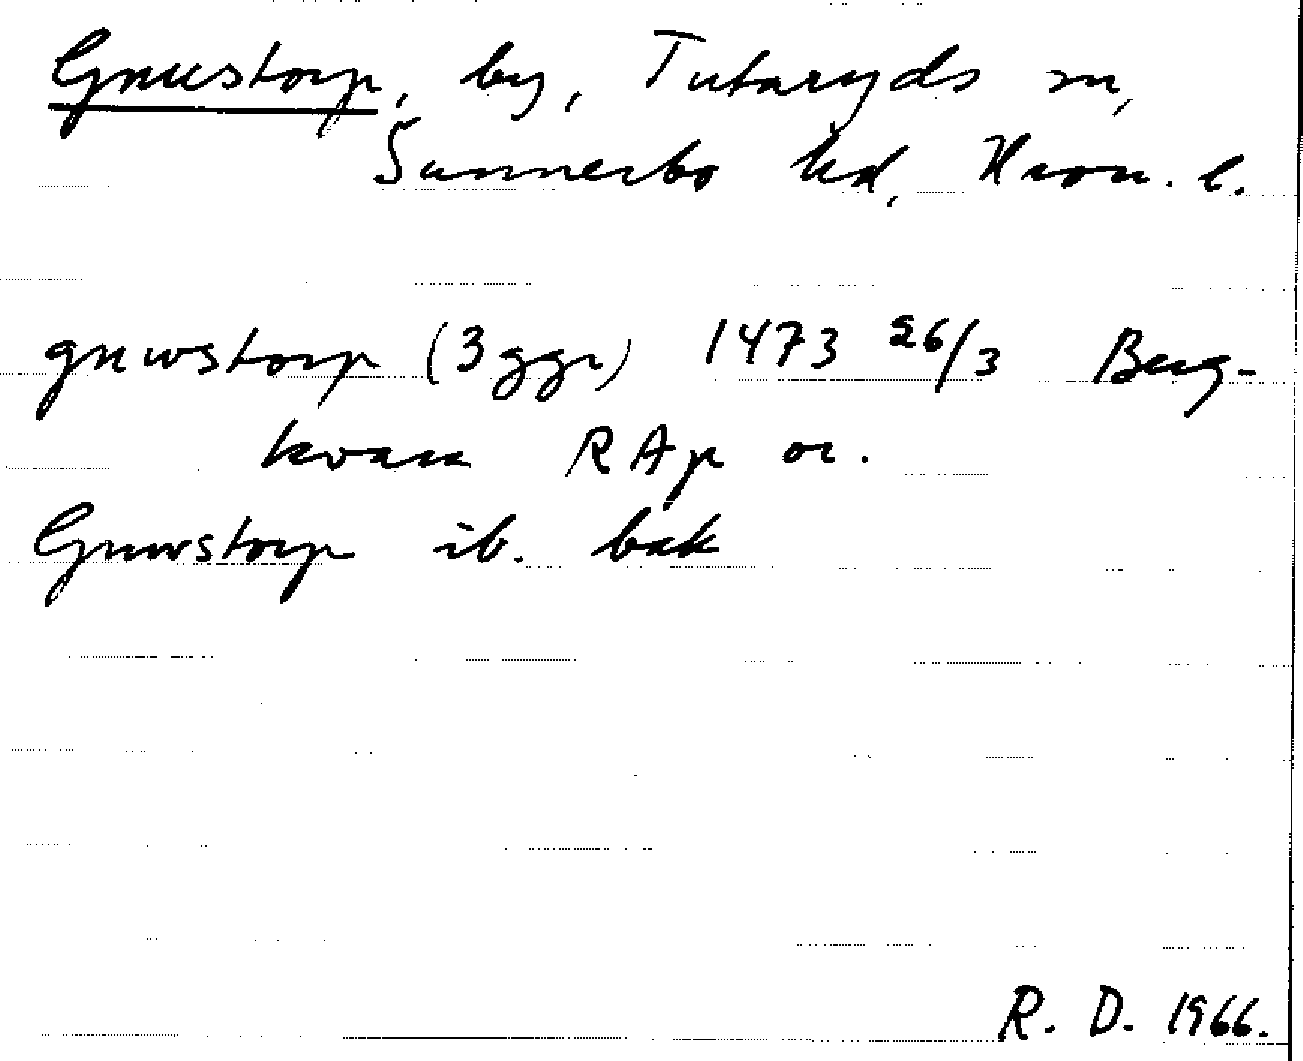 Gnustorp, by, Tutaryds sn,
Sunnerbo hd, Kron. l.
gnwstorp (3 ggr) 1473 26/3 Berg-
kvara RAp or.
Gnwstorp ib. bak
R. D. 1966.